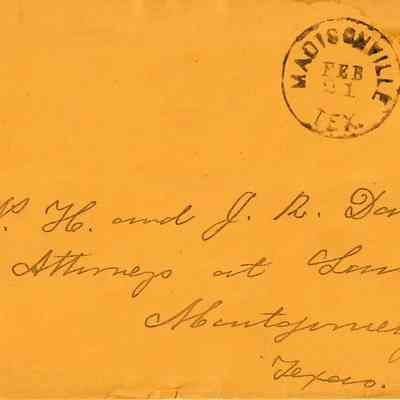 MADISONVILLE
FEB
21
TEX.
H. and J. R. Da
Attorneys at Law
Montgomery
Texas.